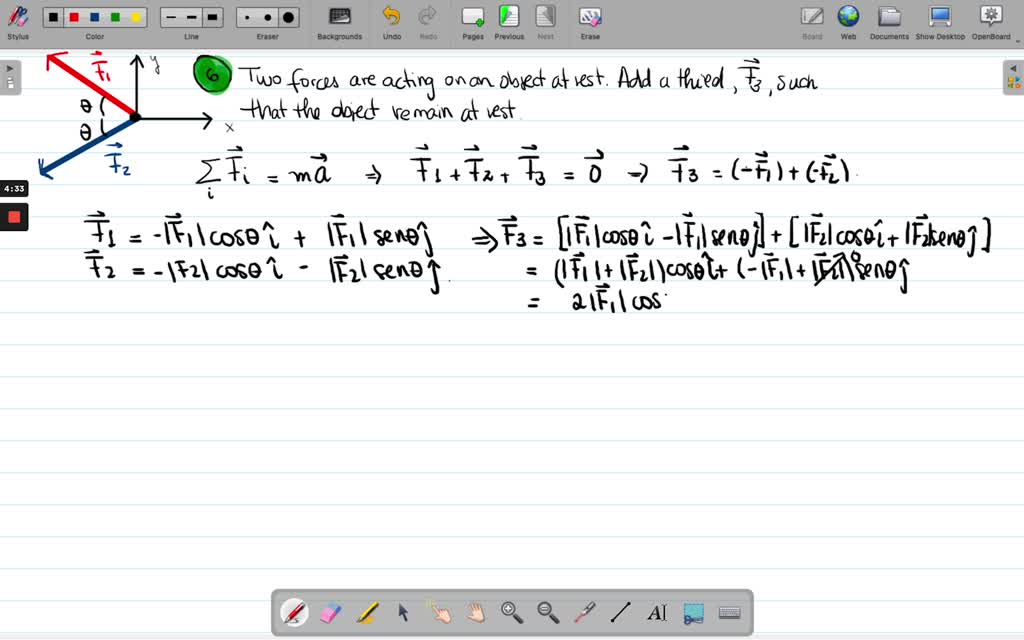 Stylus Color Line Eraser Backgrounds Undo Redo Pages Previous Next Erase Board Web Documents Show Desktop OpenBoard
F₁ y
θ
θ
x
F₂
4:33
6 Two forces are acting on an object at rest. Add a third, F⃗₃, such
that the object remain at rest.
∑ᵢ F⃗i = ma⃗ ⇒ F⃗₁ + F⃗₂ + F⃗₃ = 0⃗ ⇒ F⃗₃ = (-F⃗₁) + (-F⃗₂).
F⃗₁ = -|F⃗₁| cosθ î + |F⃗₁| senθ ĵ ⇒ F⃗₃ = [|F⃗₁| cosθ î - |F⃗₁| senθ ĵ] + [|F⃗₂| cosθ î + |F⃗₂| senθ ĵ]
F⃗₂ = -|F₂| cosθ î - |F⃗₂| senθ ĵ. = (|F⃗₁| + |F⃗₂|) cosθ î + (-|F⃗₁| + |F⃗₂|)⁰ senθ ĵ
= 2|F⃗₁| cos